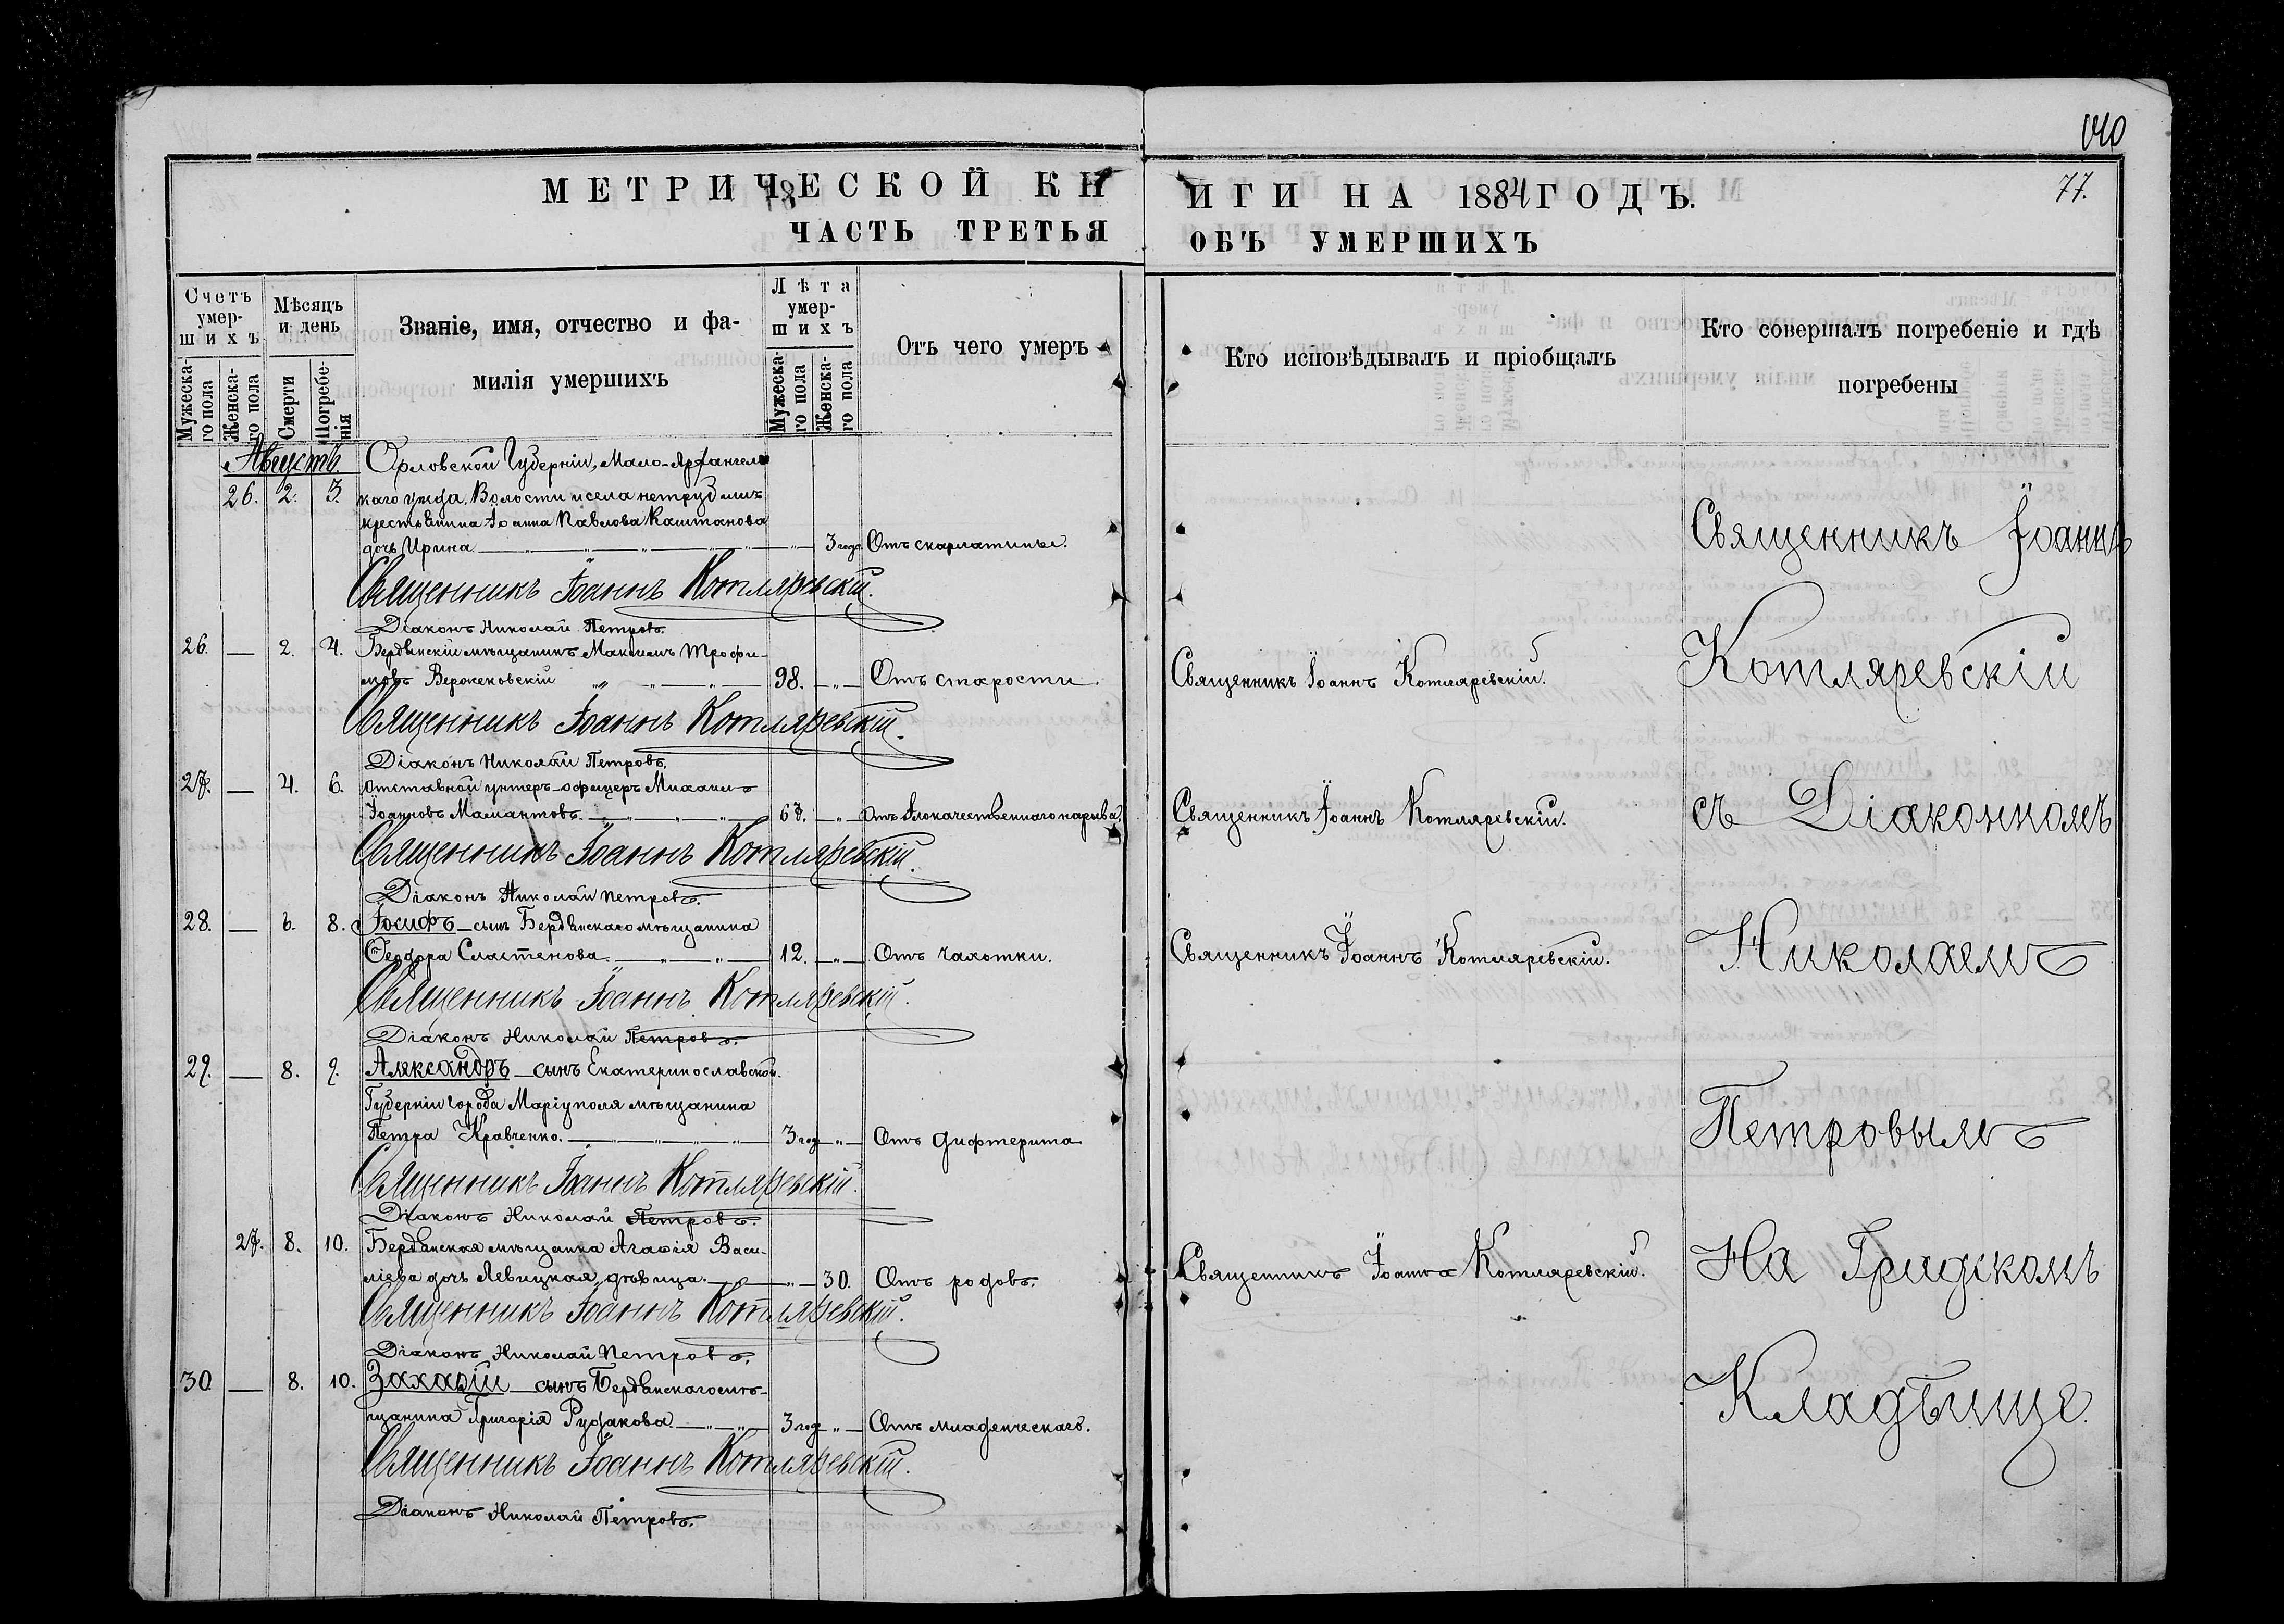 140
МЕТРИЧЕСКОЙ КНИГИ НА 1884 ГОДЪ.
77.
ЧАСТЬ ТРЕТЬЯ ОБЪ УМЕРШИХЪ
Счетъ умер-
шихъ
Мужеска-
го пола
Женска-
го пола
Мѣсяцъ
и день
Смерти
Погребе-
нія
Званіе, имя, отчество и фа-
милія умершихъ
Лѣта
умер-
шихъ
Мужеска-
го пола
Женска-
го пола
Отъ чего умеръ
Кто исповѣдывалъ и пріобщалъ
Кто совершалъ погребеніе и гдѣ
погребены
Августъ. Орловской Губерніи, Мало-Архангель
26. 2. 3. каго уѣзда, Волости и села
крестьянина Іоанна Павлова Каштанова
дочь Ирина 3 года Отъ скарлатины.
Священникъ Іоаннъ Котляревскій.
Діаконъ Николай Петровъ.
26. — 2. 4. Бердянскій мѣщанинъ Максимъ Трофи-
мовъ 98. Отъ старости. Священникъ Іоаннъ Котляревскій.
Священникъ Іоаннъ Котляревскій.
Діаконъ Николай Петровъ.
27. — 4. 6. Отставной унтеръ-офицеръ Михаилъ
Іоанновъ Мамантовъ. 67. Отъ злокачественнаго нарыва. Священникъ Іоаннъ Котляревскій.
Священникъ Іоаннъ Котляревскій.
Діаконъ Николай Петровъ.
28. — 6. 8. Іосифъ сынъ Бердянскаго мѣщанина
Ѳеодора Сластенова. 12. Отъ чахотки. Священникъ Іоаннъ Котляревскій.
Священникъ Іоаннъ Котляревскій.
Діаконъ Николай Петровъ.
29. — 8. 9. Александръ сынъ Екатеринославской
Губерніи города Маріуполя мѣщанина
Петра Кравченко. 3 год Отъ дифтерита
Священникъ Іоаннъ Котляревскій.
Діаконъ Николай Петровъ.
27. 8. 10. Бердянская мѣщанка Агафія Васи-
ліева дочь Левицкая, дѣвица. 30. Отъ родовъ. Священникъ Іоаннъ Котляревскій.
Священникъ Іоаннъ Котляревскій.
Діаконъ Николай Петровъ.
30 — 8. 10. Захарій сынъ Бердянскаго мѣ-
щанина Григорія Рудакова 3 год Отъ младенческаго.
Священникъ Іоаннъ Котляревскій.
Діаконъ Николай Петровъ.
Священникъ Іоаннъ
Котляревскій
съ Діакономъ
Николаемъ
Петровымъ
На Градском
Кладбище.